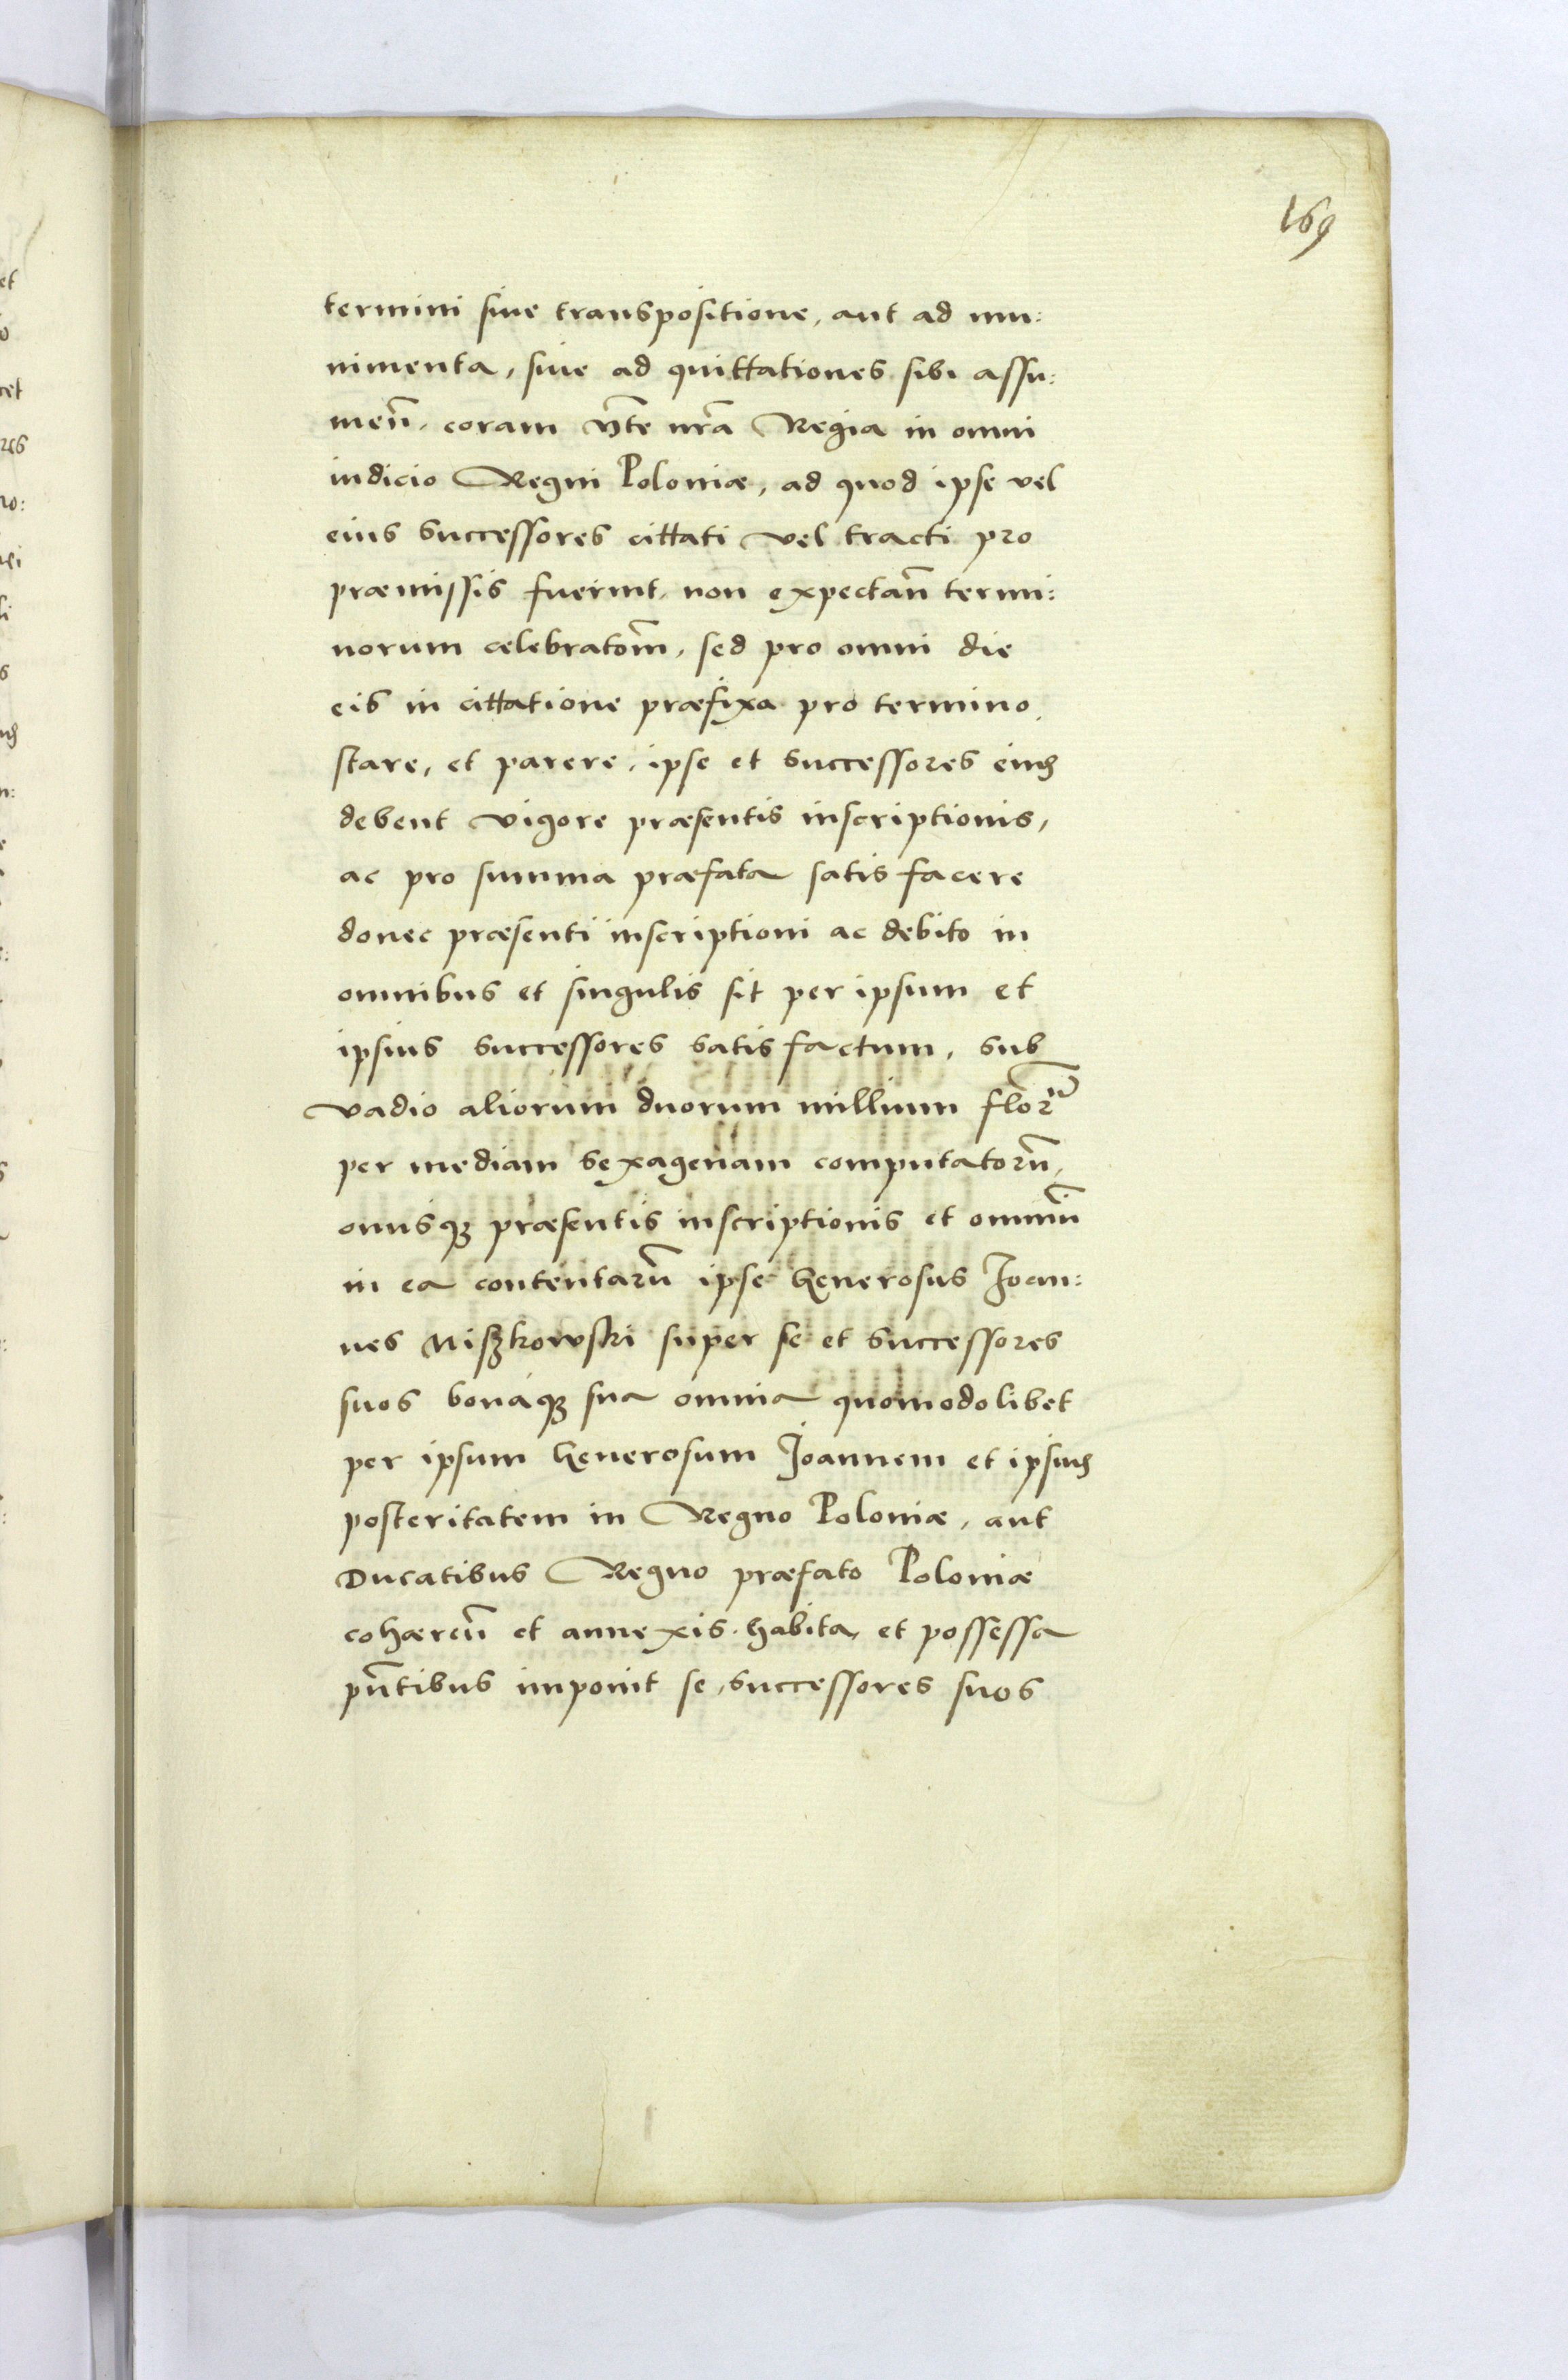 169
termini siue transpositione, aut ad mu:
nimenta, siue ad quittationes sibi assu:
meñ. coram Mte nr̃a Regia in omni
iudicio Regni Poloniæ, ad quod ipse vel
eius successores cittati vel tracti pro
præmissis fuerint, non expectañ termi:
norum celebratom̃, sed pro omni die
eis in cittatione præfixa pro termino,
stare, et parere, ipse et successores eius
debent vigore præsentis inscriptionis,
ac pro summa præfata satis facere
donec præsenti inscriptioni ac debito in
omnibus et singulis sit per ipsum et
ipsius successores satis factum, sub
vadio aliorum duorum millium flor̃
per mediam sexagenam computatorũ,
onusq3 præsentis inscriptionis et omniũ
in ea contentarũ ipse Generosus Joan:
nes Niszkowski super se et successores
suos bonaq3 sua omnia quomodolibet
per ipsum Generosum Joannem et ipsius
posteritatem in Regno Poloniæ, aut
Ducatibus Regno præfato Poloniæ
cohæreñ et annexis habita, et possessa
pñtibus imponit se, successores suos